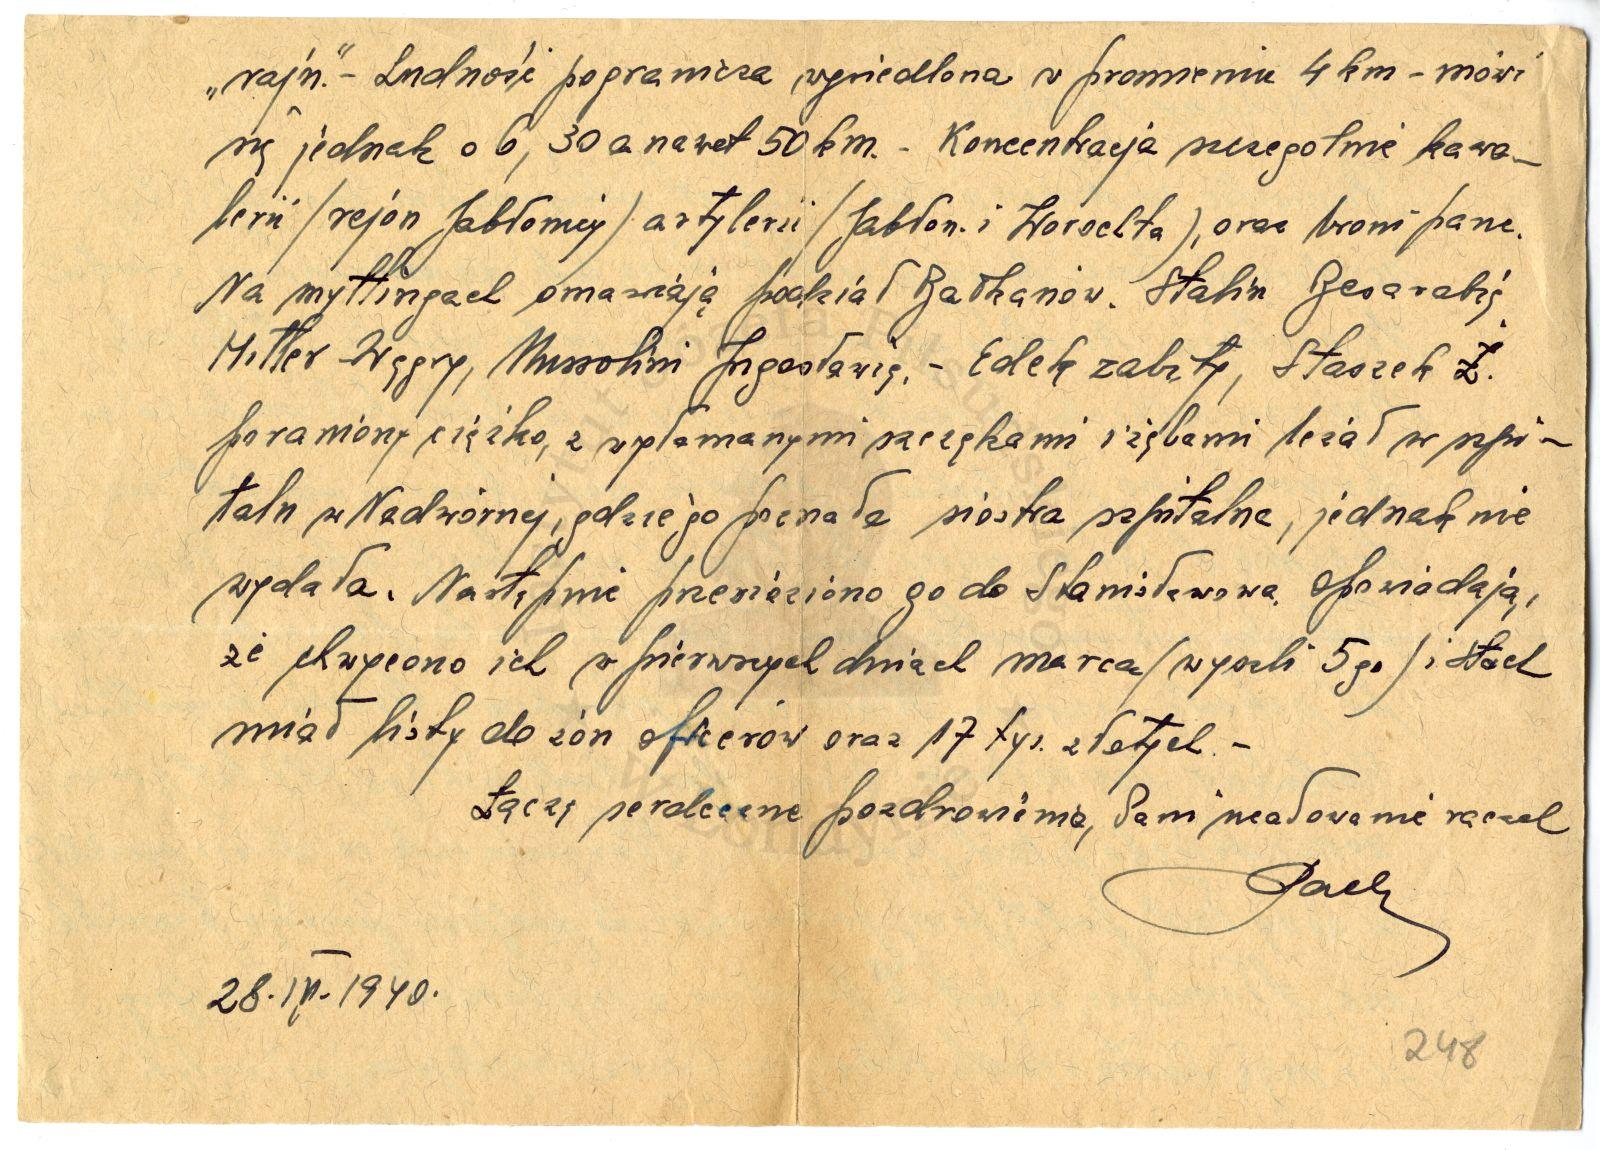 „rajn.” - Ludność pogranicza wysiedlona w promieniu 4 km - mówi
się jednak o 6, 30 a nawet 50 km. - Koncentracja szczegolnie kawa-
lerii /rejon Jabłonicy/ artylerii /Jabłon. i Worochta), oraz broni panc.
Na myttingach omawiają podział Bałkanów. Stalin Besarabię,
Hitler Węgry, Mussolini Jugosławię. - Edek zabity, Staszek Ż.
poraniony ciężko, z wyłamanymi szczękami i zębami leżał w szpi-
talu w Nadwórnej, gdzie go poznała siostra szpitalna, jednak nie
wydała. Następnie przewieziono go do Stanisławowa. Opowiadają,
że chwycono ich w pierwszych dniach marca /wyszli 5go/ i Stach
miał listy do żon oficerów oraz 17 tys. złotych. -
Łączę serdeczne pozdrowienia, Pani ucałowanie rączek
28.IV.1940.
248